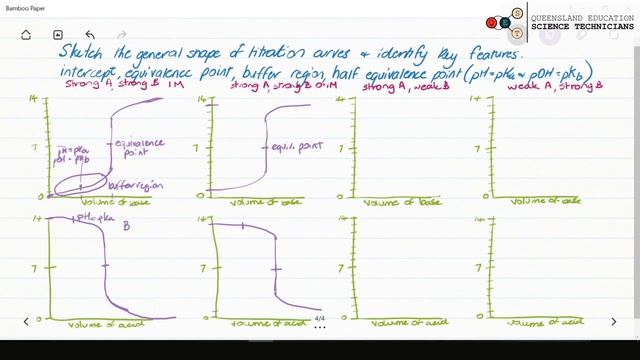 Bamboo Paper
QUEENSLAND EDUCATION
SCIENCE TECHNICIANS
Sketch the general shape of titration curves & identify key features.
intercept, equivalence point, buffer region, half equivalence point (pH=pKa & pOH=pKb)
strong A, strong B 1M
strong A, strong B 0.1M
strong A, weak B
weak A, strong B
14
7
0
pH=pKa
pOH=pKb
equivalence
point
buffer region
volume of base
14
7
0
equiv. point
volume of base
14
7
0
volume of base
14
7
0
volume of base
14
7
0
B
volume of acid
14
7
0
volume of acid
4/4
14
7
0
volume of acid
14
7
0
volume of acid